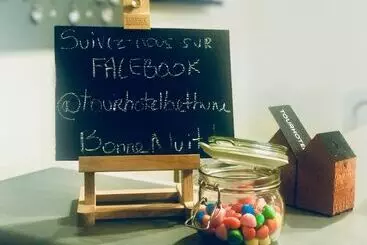 Suivez-nous sur
FACEBOOK
@tourhotelbethune
Bonne Nuit!
TOURHOTEL